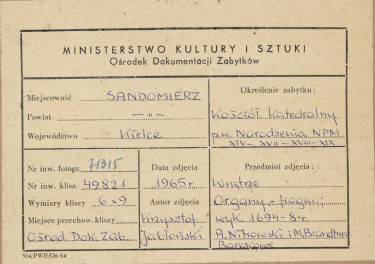 MINISTERSTWO KULTURY I SZTUKI
Ośrodek Dokumentacji Zabytków
Miejscowość SANDOMIERZ
Powiat — „ —
Województwo Kielce
Określenie zabytku:
Kościół Katedralny
p.w. Narodzenia NPM
XIV - XVII - XVIII - XIX
Nr inw. fotogr. 71315
Nr inw. klisz. 49821
Wymiary kliszy 6x9
Miejsce przechow. kliszy
Ośrod. Dok. Zab.
Data zdjęcia
1965 r.
Autor zdjęcia
Krzysztof
Jabłoński
Przedmiot zdjęcia:
Wnętrze
Organy - fragm.,
wyk. 1694-8 r.
A. Nitrowski i M. Brandtner
Barokowe
514/PWH/On 64